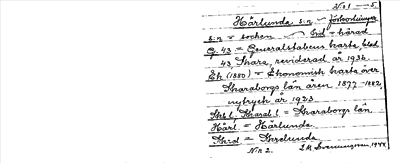 No 1 — 5.
Hårlunda s:n – förkortningar
s:n = socken
hd = härad
G. 43 = Generalstabens karta, blad
43, Skara, reviderad år 1932
Ek (1880) = Ekonomisk karta över
Skaraborgs län åren 1877-1882,
nytryck år 1923
Skb l., Skarab. l. = Skaraborgs län
Hårl. = Hårlunda
No 2.